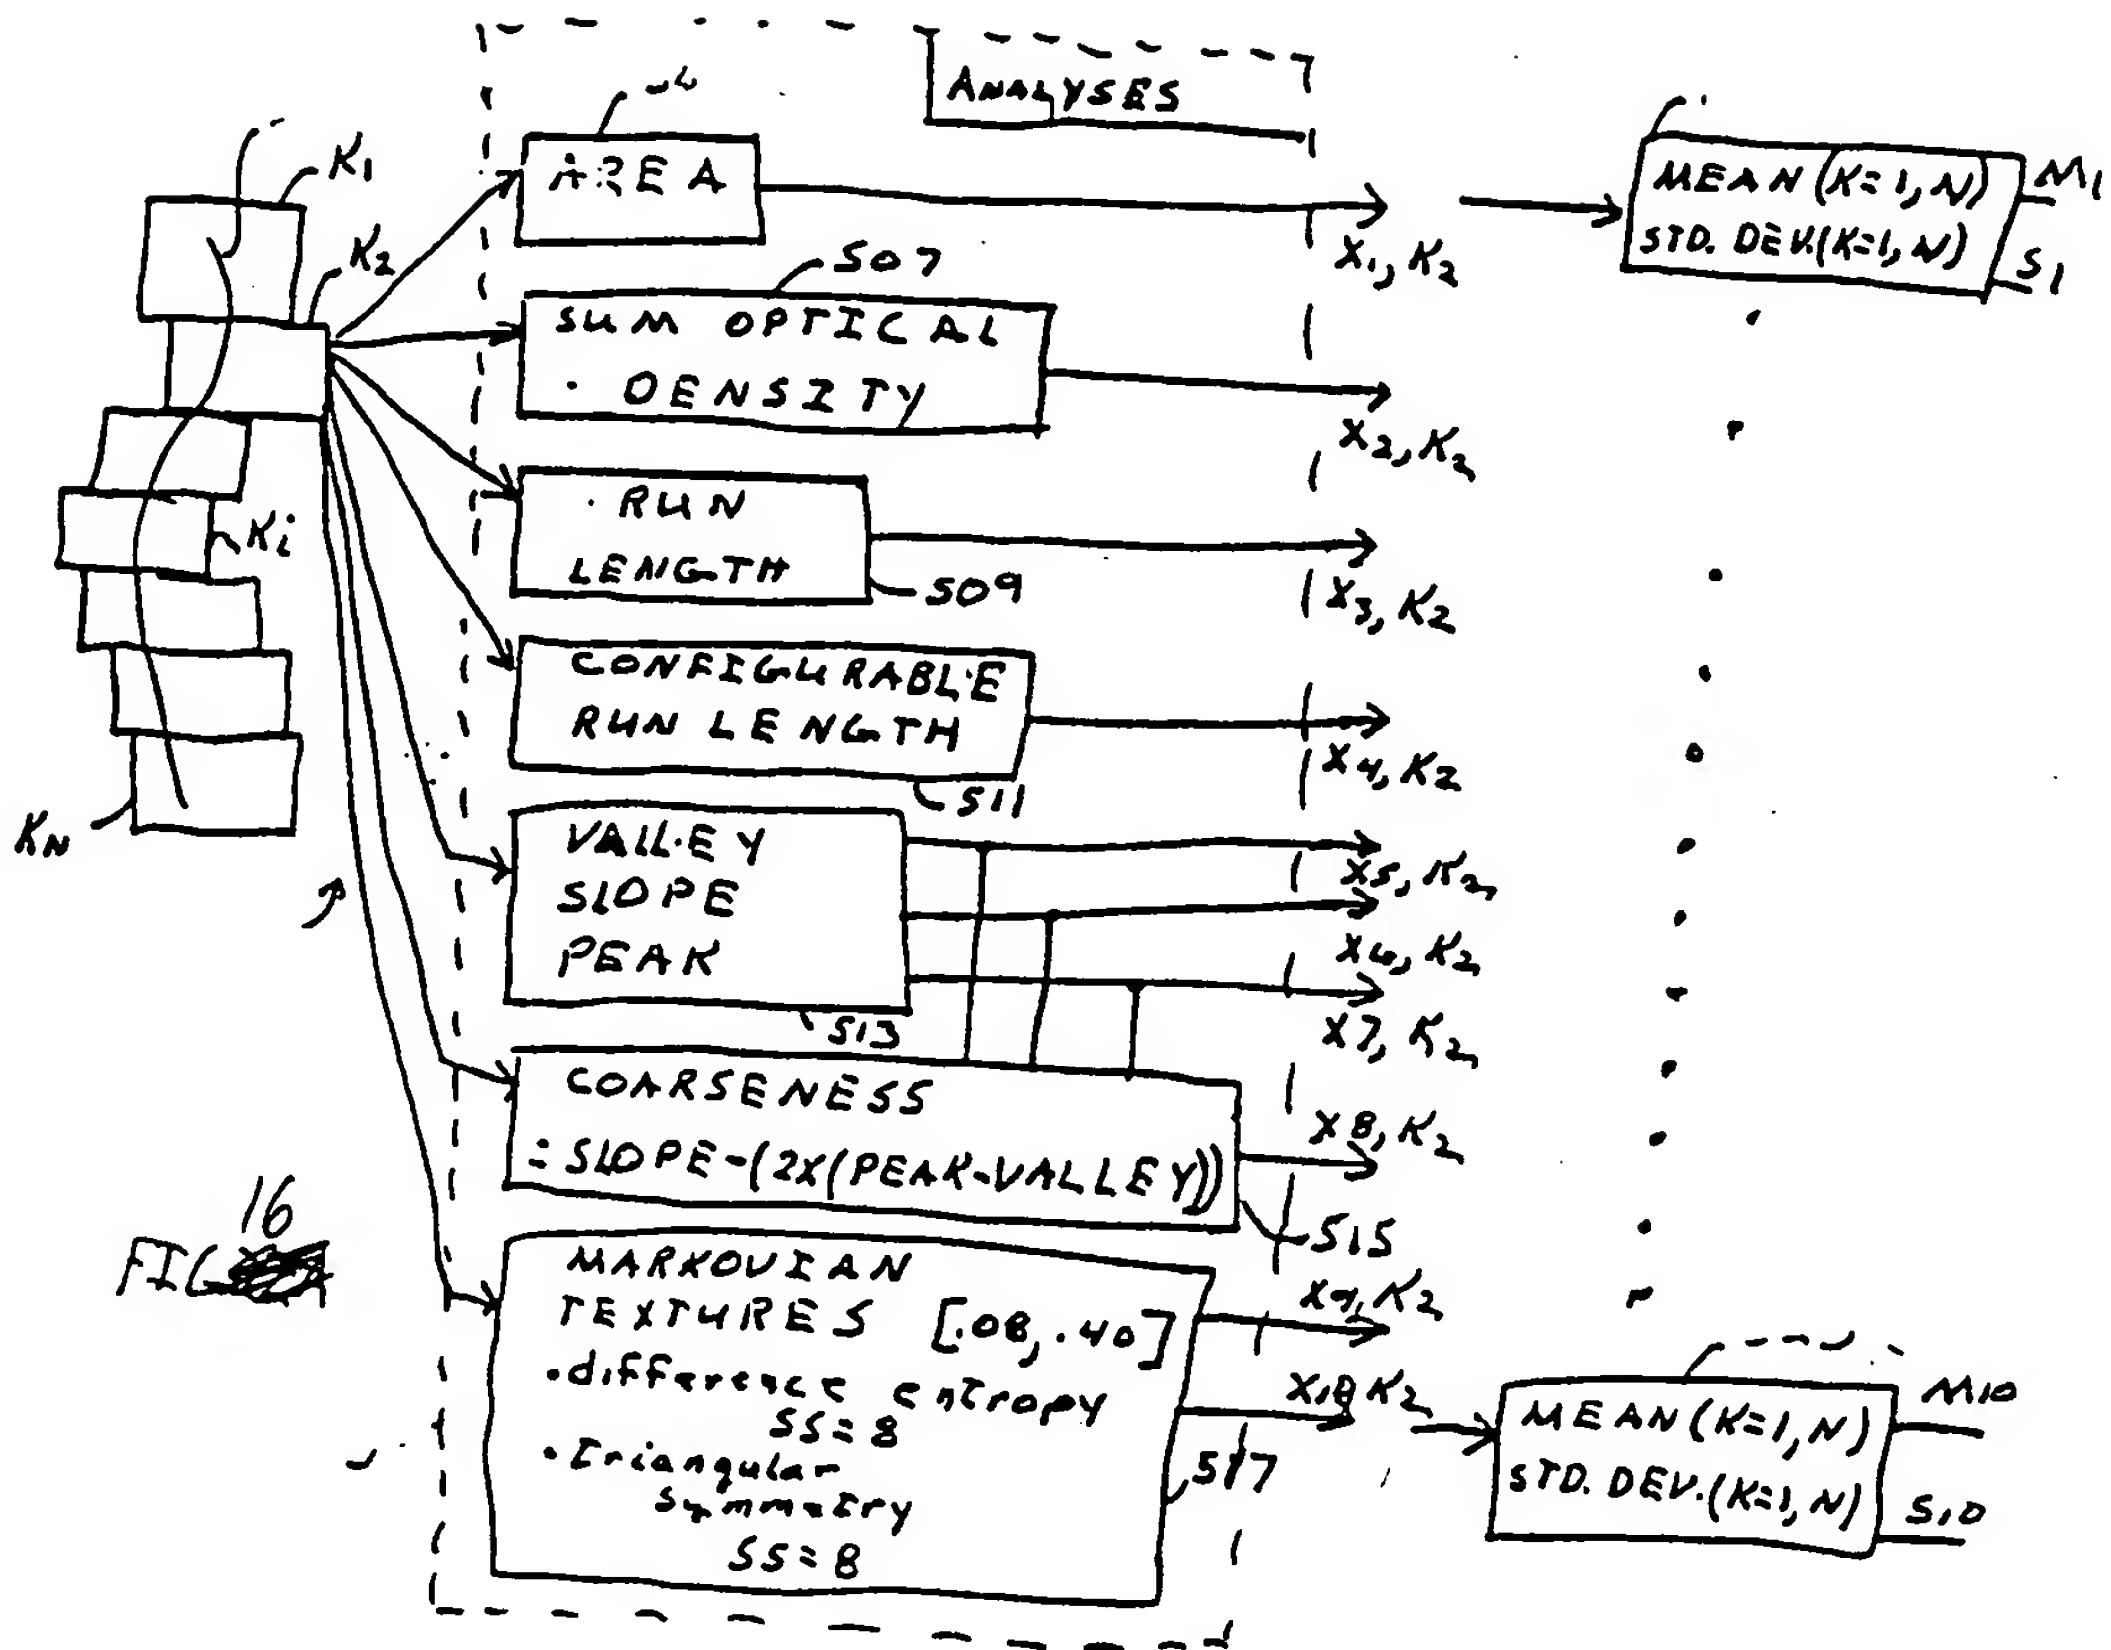 ANALYSES
K1
K2
Ki
KN
AREA
X1, K2
MEAN (K=1, N)
STD. DEV. (K=1, N)
M1
S1
507
SUM OPTICAL
DENSITY
X2, K2
RUN
LENGTH
509
X3, K2
CONFIGURABLE
RUN LENGTH
511
X4, K2
VALLEY
SLOPE
PEAK
513
X5, K2
X6, K2
X7, K2
COARSENESS
= SLOPE-(2X(PEAK-VALLEY))
X8, K2
515
FIG 16
MARKOVIAN
TEXTURES [.08, .40]
• difference entropy
SS=8
• triangular
symmetry
SS=8
X9, K2
X10 K2
517
MEAN (K=1, N)
STD. DEV. (K=1, N)
M10
S10